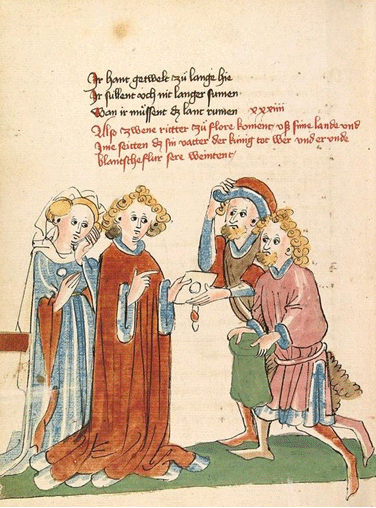 Ir hant getwelt zü lange hie
Ir sullent och nit langer sumen
Wan ir müssent dz lant rumen xxxiii
Alß zwene ritter zü flore koment vß sime lande vnd
Ime seitten dz sin vatter der künig tot wer vnd er vnde
blantscheflur sere weintent